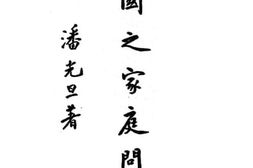 國之家庭問
潘光旦著